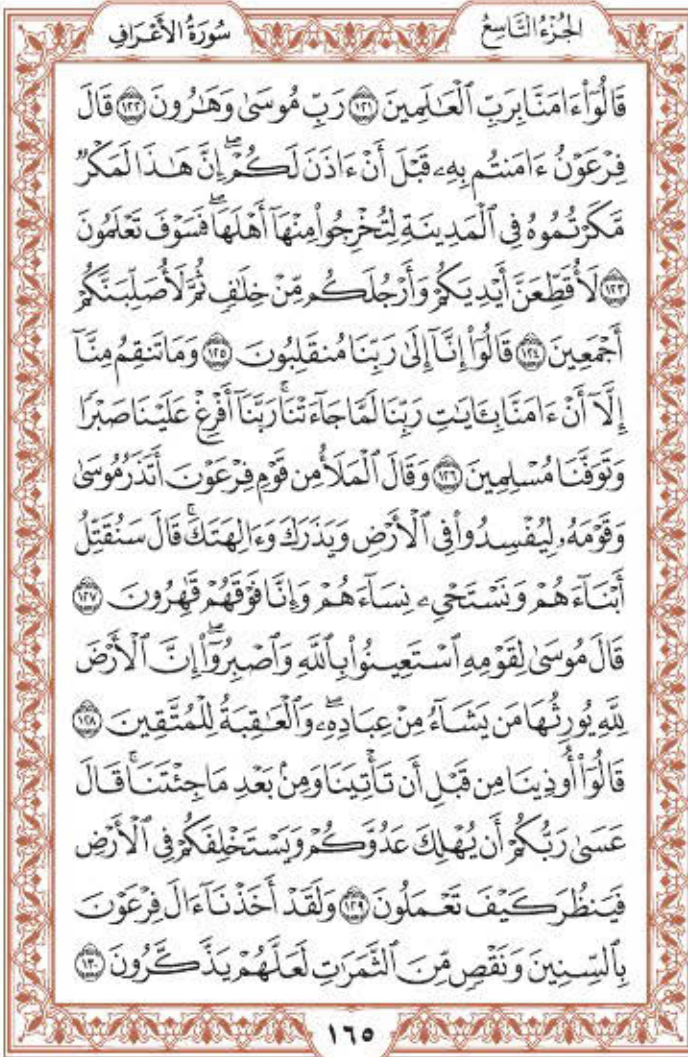 الجُزْءُ التَّاسِعُ
سُورَةُ الأَعْرَافِ
قَالُوٓاْ ءَامَنَّا بِرَبِّ ٱلْعَٰلَمِينَ ١٢١ رَبِّ مُوسَىٰ وَهَٰرُونَ ١٢٢ قَالَ
فِرْعَوْنُ ءَامَنتُم بِهِۦ قَبْلَ أَنْ ءَاذَنَ لَكُمْۖ إِنَّ هَٰذَا لَمَكْرٌ
مَّكَرْتُمُوهُ فِي ٱلْمَدِينَةِ لِتُخْرِجُواْ مِنْهَآ أَهْلَهَاۖ فَسَوْفَ تَعْلَمُونَ
١٢٣ لَأُقَطِّعَنَّ أَيْدِيَكُمْ وَأَرْجُلَكُم مِّنْ خِلَٰفٍ ثُمَّ لَأُصَلِّبَنَّكُمْ
أَجْمَعِينَ ١٢٤ قَالُوٓاْ إِنَّآ إِلَىٰ رَبِّنَا مُنقَلِبُونَ ١٢٥ وَمَا تَنقِمُ مِنَّآ
إِلَّآ أَنْ ءَامَنَّا بِـَٔايَٰتِ رَبِّنَا لَمَّا جَآءَتْنَاۚ رَبَّنَآ أَفْرِغْ عَلَيْنَا صَبْرًا
وَتَوَفَّنَا مُسْلِمِينَ ١٢٦ وَقَالَ ٱلْمَلَأُ مِن قَوْمِ فِرْعَوْنَ أَتَذَرُ مُوسَىٰ
وَقَوْمَهُۥ لِيُفْسِدُواْ فِي ٱلْأَرْضِ وَيَذَرَكَ وَءَالِهَتَكَۚ قَالَ سَنُقَتِّلُ
أَبْنَآءَهُمْ وَنَسْتَحْيِۦ نِسَآءَهُمْ وَإِنَّا فَوْقَهُمْ قَٰهِرُونَ ١٢٧
قَالَ مُوسَىٰ لِقَوْمِهِ ٱسْتَعِينُواْ بِٱللَّهِ وَٱصْبِرُوٓاْۖ إِنَّ ٱلْأَرْضَ
لِلَّهِ يُورِثُهَا مَن يَشَآءُ مِنْ عِبَادِهِۦۖ وَٱلْعَٰقِبَةُ لِلْمُتَّقِينَ ١٢٨
قَالُوٓاْ أُوذِينَا مِن قَبْلِ أَن تَأْتِيَنَا وَمِنۢ بَعْدِ مَا جِئْتَنَاۚ قَالَ
عَسَىٰ رَبُّكُمْ أَن يُهْلِكَ عَدُوَّكُمْ وَيَسْتَخْلِفَكُمْ فِي ٱلْأَرْضِ
فَيَنظُرَ كَيْفَ تَعْمَلُونَ ١٢٩ وَلَقَدْ أَخَذْنَآ ءَالَ فِرْعَوْنَ
بِٱلسِّنِينَ وَنَقْصٍ مِّنَ ٱلثَّمَرَٰتِ لَعَلَّهُمْ يَذَّكَّرُونَ ١٣٠
١٦٥